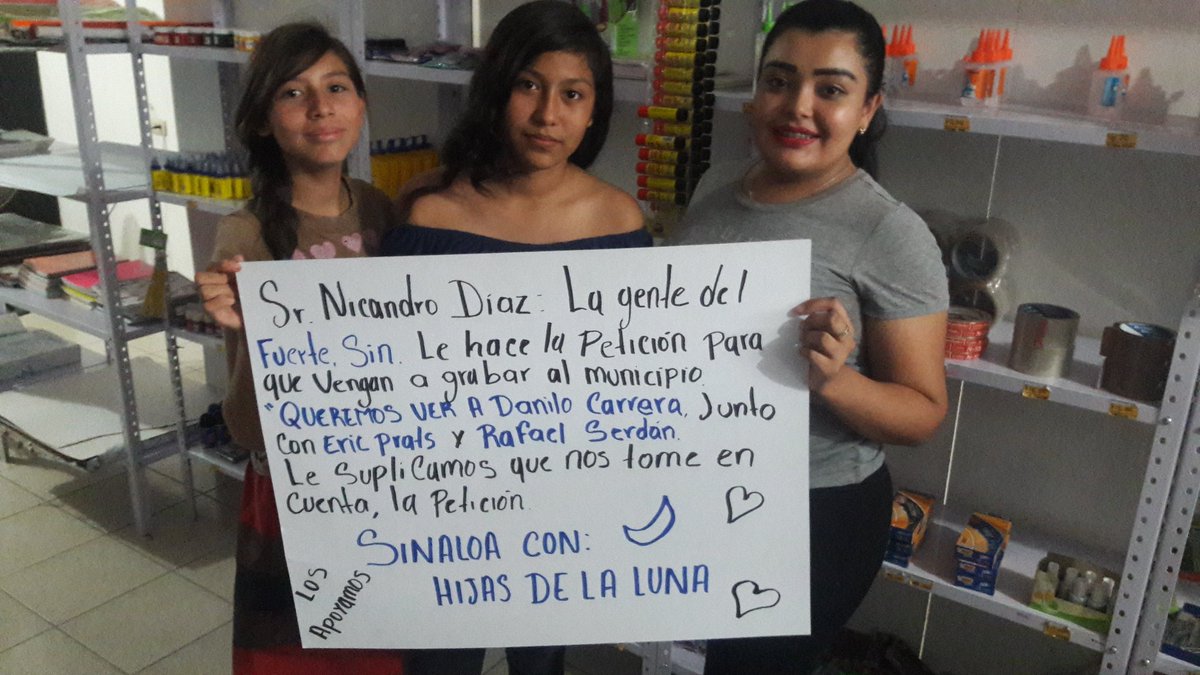 Sr. Nicandro Díaz: La gente del
Fuerte, Sin. Le hace la Petición para
que vengan a grabar al municipio.
"QUEREMOS VER A Danilo Carrera, Junto
con Eric Prats y Rafael Serdán.
Le SupliCamos que nos tome en
cuenta, la Petición.
SINALOA CON:
HIJAS DE LA LUNA
Los
Apoyamos